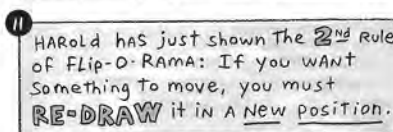 11
HAROLd hAS just shown The 2nd Rule
of FLip-O-RAMA: If you WANT
Something to move, you must
RE-DRAW it iN A New Position.